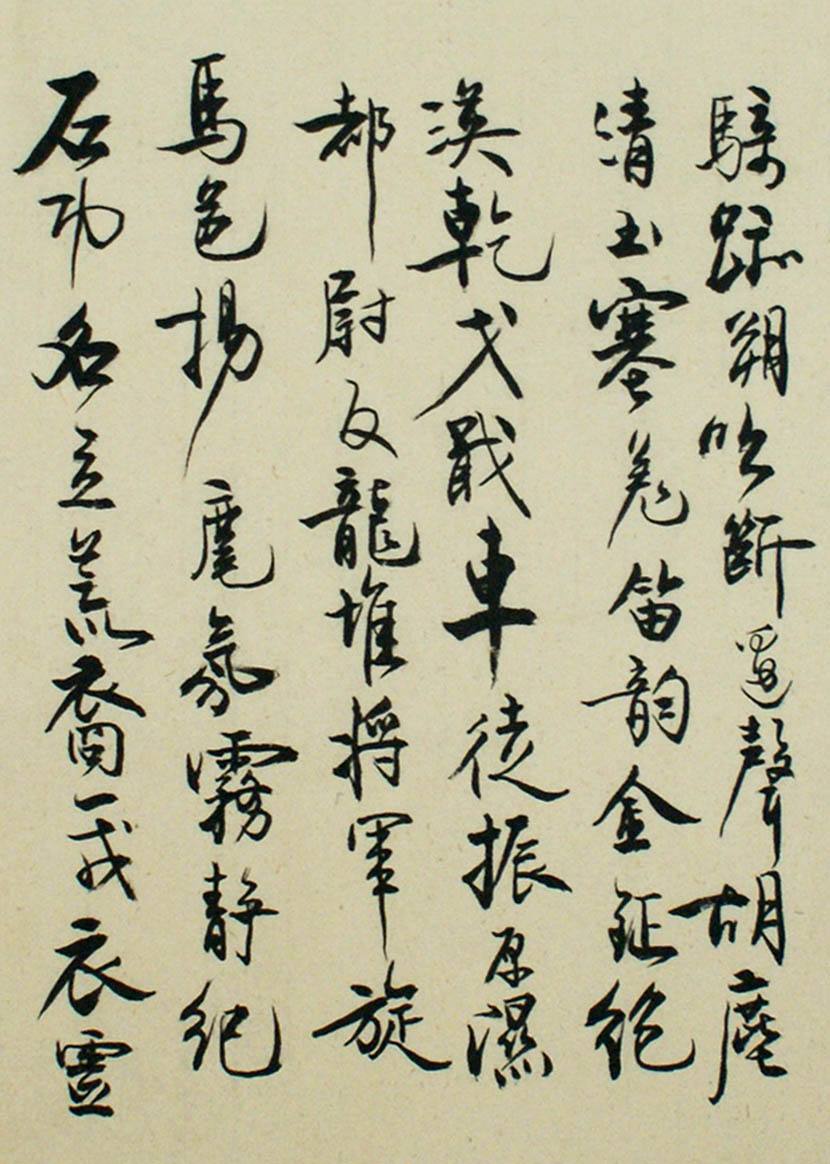 騎跡朔吹斷邊聲胡塵
清玉塞羌笛韵金鉦絕
漠乾戈戢車徒振原濕
都尉反龍堆將軍旋
馬邑揚麾氛霧静紀
石功名立荒裔一戎衣霊